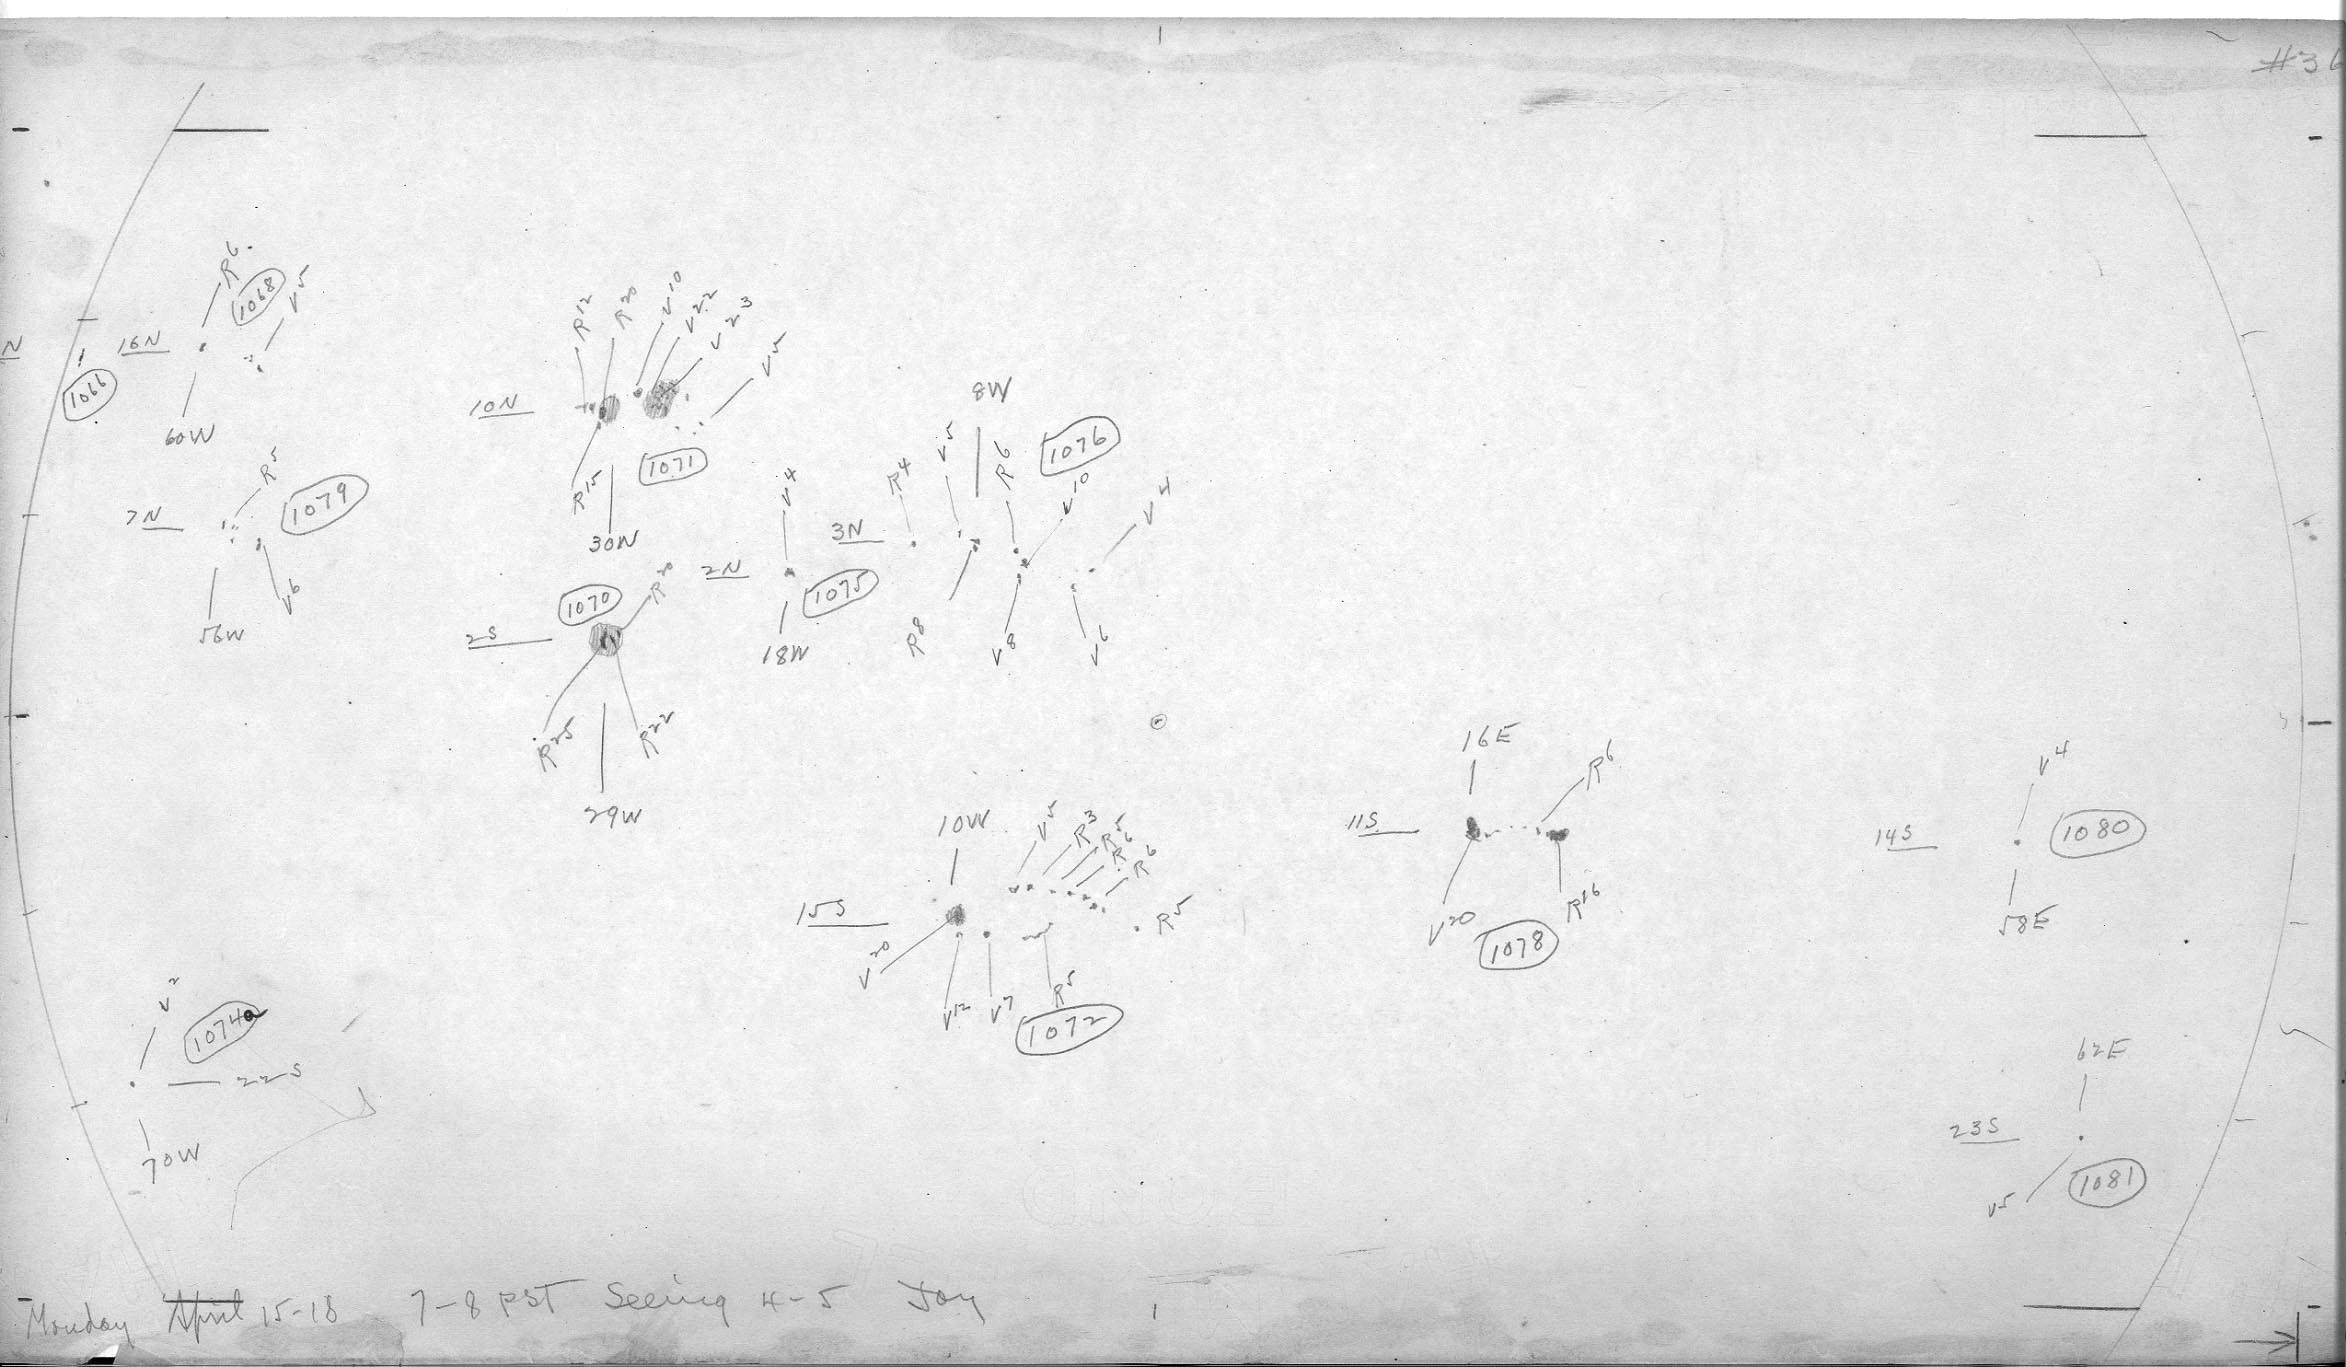 #36
R6
1068
V5
N
16N
1066
60W
R12
R20
V10
V22
V23
V5
10N
R15
1071
30W
8W
R5
1079
7N
V6
56W
V4
3N
R4
V5
R6
1076
V10
V4
2N
1075
18W
R8
V8
V6
1070
R20
2S
R25
R22
29W
16E
R6
11S
V20
R16
1078
V4
14S
1080
58E
10W
V5
R3
R5
R6
R6
15S
R5
V20
V12
V7
R5
1072
V2
1074a
22S
70W
62E
23S
1081
V5
Monday April 15-18 7-8 PST Seeing 4-5 Joy